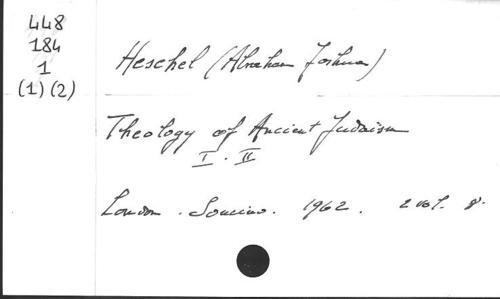 448
184
1
(1) (2)
Heschel (Abraham Joshua)
Theology of Ancient Judaism
I. II
London. Soncino. 1962. 2 vol. 8.